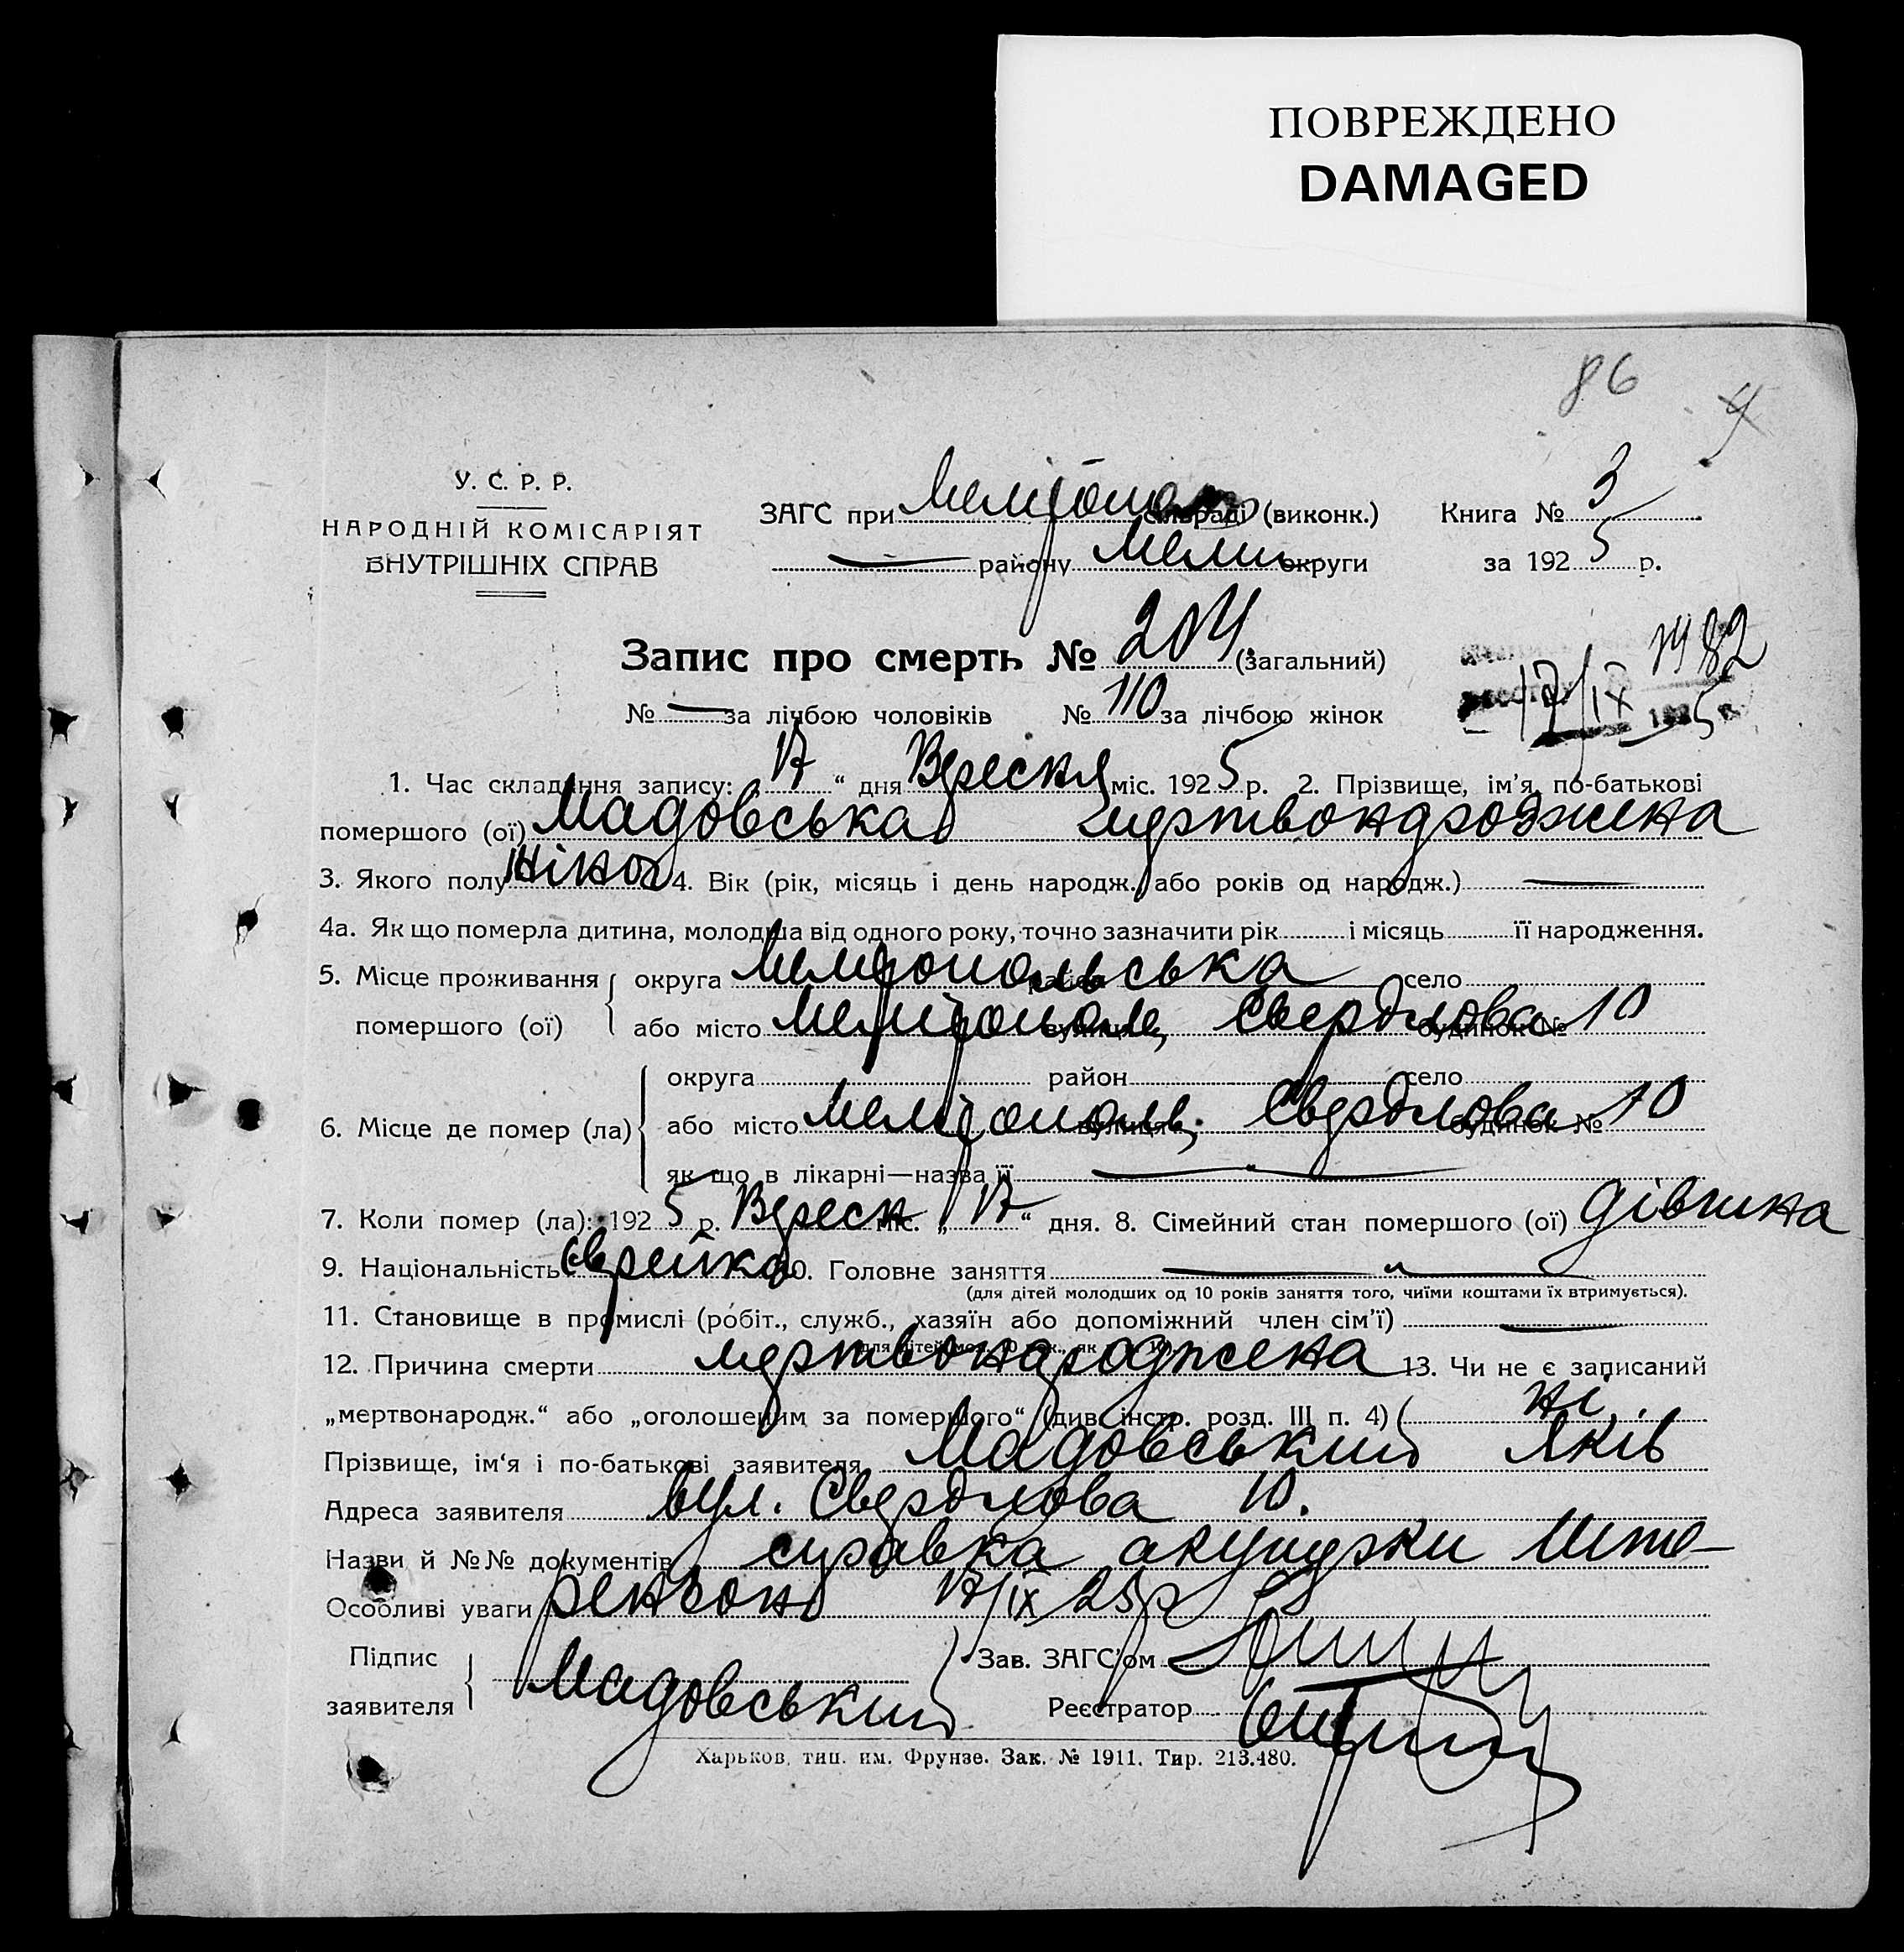 ПОВРЕЖДЕНО
DAMAGED
86
У. С. Р. Р.
НАРОДНІЙ КОМІСАРІЯТ
ВНУТРІШНІХ СПРАВ
ЗАГС при сільраді (виконк.) Книга № 3
району Мелит округи за 1925 р.
Запис про смерть № 204 (загальний)
№ — за лічбою чоловіків № 110 за лічбою жінок
17/IX 1925
1. Час складання запису: 17 “ дня Вересня міс. 1925 р. 2. Прізвище, ім’я, по-батькові
помершого (ої) Мадовська мертвонароджена
3. Якого полу жіноч 4. Вік (рік, місяць і день народж. або років од народж.) —
4а. Як що померла дитина, молодша від одного року, точно зазначити рік і місяць її народження.
5. Місце проживання округа Мелітопольська район село
помершого (ої) або місто Мелітополь, вулиця Свердлова будинок № 10
округа район село
6. Місце де помер (ла) або місто Мелітополь, вулиця Свердлова будинок № 10
як що в лікарні—назва її — „ —
7. Коли помер (ла): 1925 р. Вересн міс. „ 17 “ дня. 8. Сімейний стан помершого (ої) дівчина
9. Національність єврейка 10. Головне заняття — „ —
(для дітей молодших од 10 років заняття того, чиїми коштами їх втримується).
11. Становище в промислі (робіт., служб., хазяїн або допоміжний член сім’ї) —
12. Причина смерти мертвонароджена 13. Чи не є записаний
„мертвонародж.“ або „оголошеним за помершого“ (див. інстр. розд. III п. 4) ні
Прізвище, ім‘я і по-батькові заявителя Мадовський Яків
Адреса заявителя вул. Свердлова 10.
Назви й №№ документів справка акушеркиШте-
Особливі уваги рензон 17/IX 25р
Підпис Зав. ЗАГС’ом
заявителя Мадовський Реєстратор
Харьков, тип. им. Фрунзе. Зак. № 1911. Тир. 213.480.